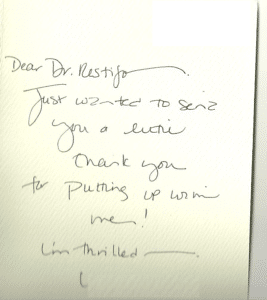 Dear Dr. Restifo
Just wanted to send
you a little
thank you
for putting up with
me!
I'm thrilled —